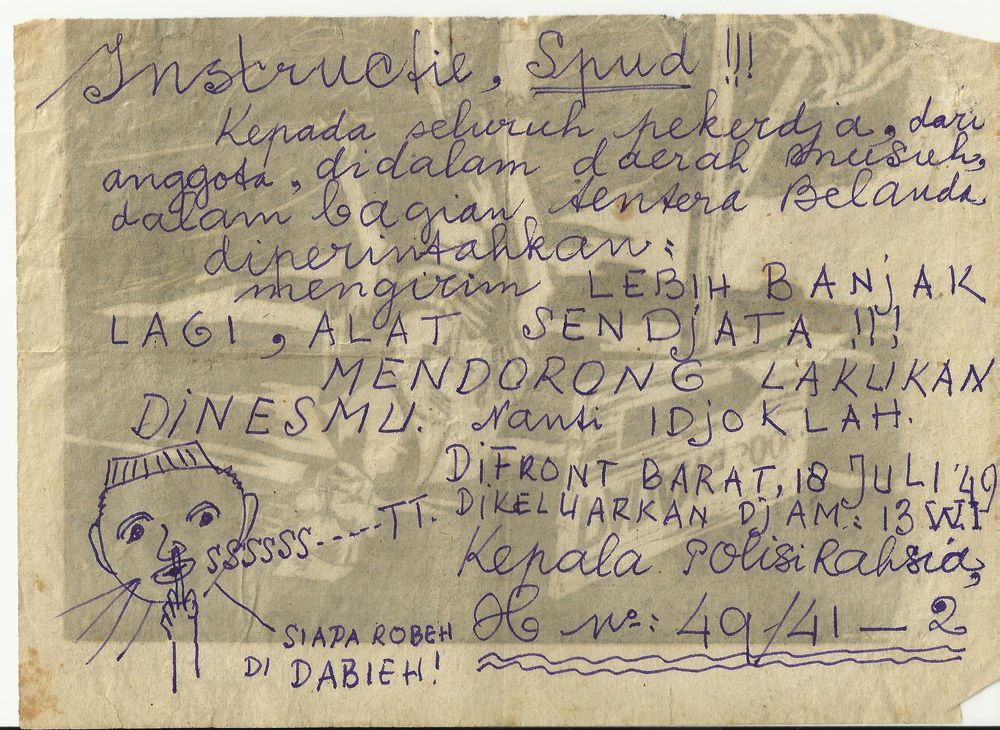 Instructie, Spud !!!
Kepada seluruh pekerdja, dari
anggota, didalam daerah musuh,
dalam bagian tentera Belanda
diperintahkan:
mengirim LEBIH BANJAK
LAGI, ALAT SENDJATA !!!
MENDORONG LAKUKAN
DINESMU. Nanti IDJOKLAH.
DIFRONT BARAT, 18 JULI '49
DIKELUARKAN DJAM: 13 W.I
Kepala Polisi Rahsia,
SSSSSS----TT.
SIAPA ROBEH
DI DABIEH!
No: 49/41 - 2